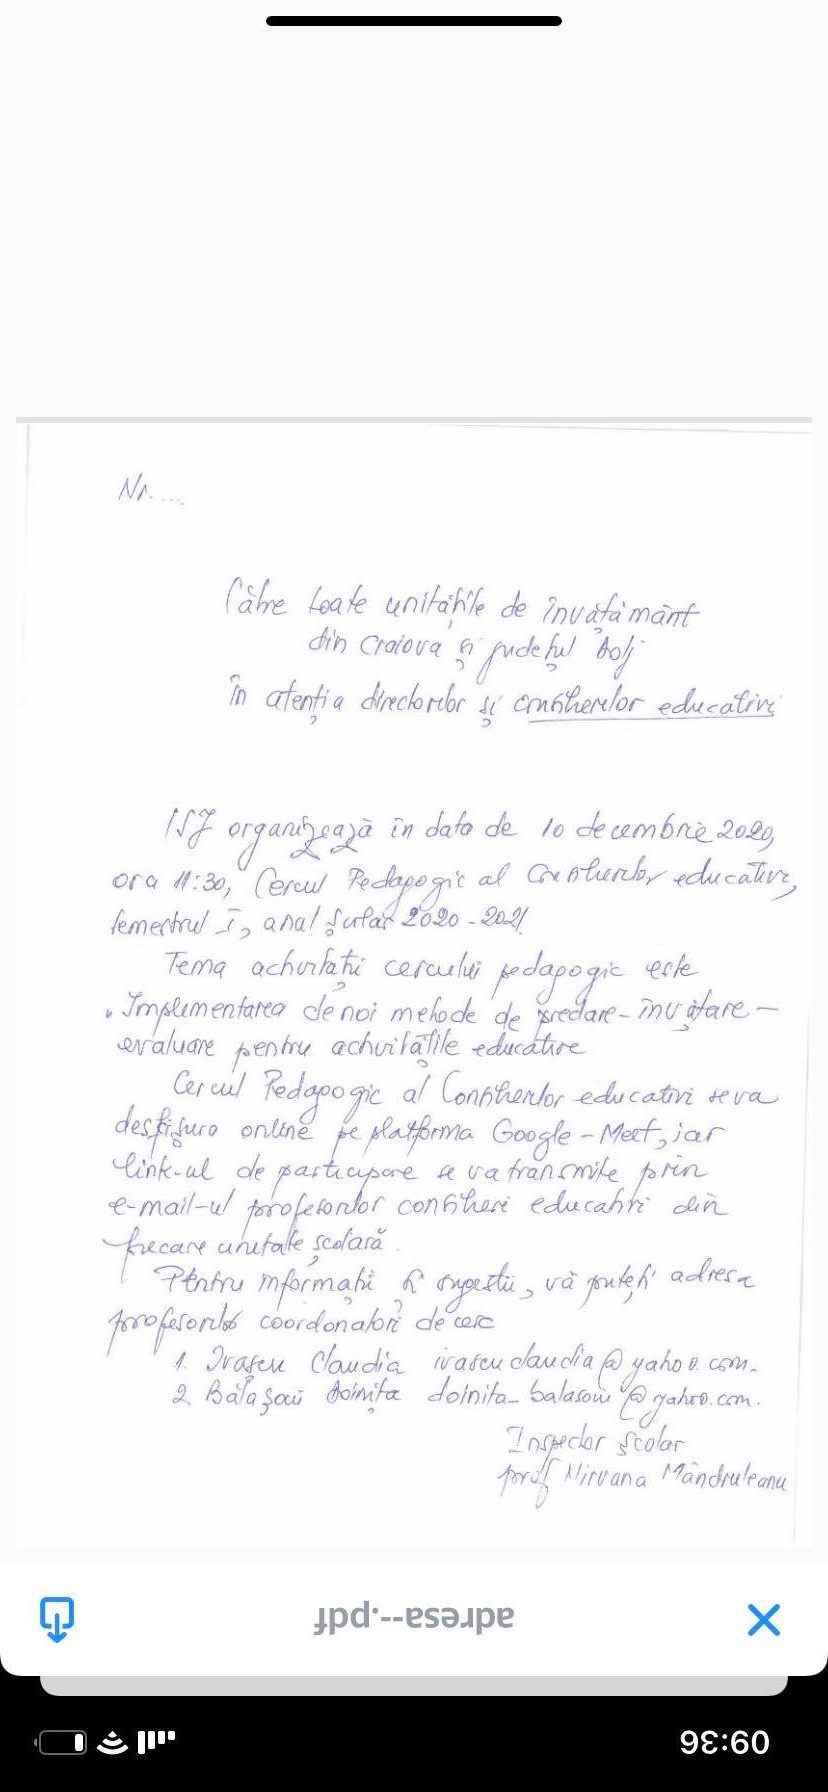 Nr. ....
Către toate unitățile de învățământ
din Craiova și județul Dolj
în atenția directorilor și consilierilor educativi
ISJ organizează în data de 10 decembrie 2020,
ora 11:30, Cercul Pedagogic al Consilierilor educativi,
semestrul I, anul școlar 2020-2021.
Tema activității cercului pedagogic este
„Implementarea de noi metode de predare-învățare-
evaluare pentru activitățile educative
Cercul Pedagogic al Consilierilor educativi se va
desfășura online pe platforma Google-Meet, iar
link-ul de participare se va transmite prin
e-mail-ul profesorilor consilieri educativi din
fiecare unitate școlară.
Pentru informații și sugestii, vă puteți adresa
profesorilor coordonatori de cerc
1. Ivașcu Claudia ivascuclaudia@yahoo.com.
2. Bălașoiu Doinița doinita_balasoiu@yahoo.com.
Inspector școlar
prof Nirvana Mândruleanu
adresa--.pdf
09:36